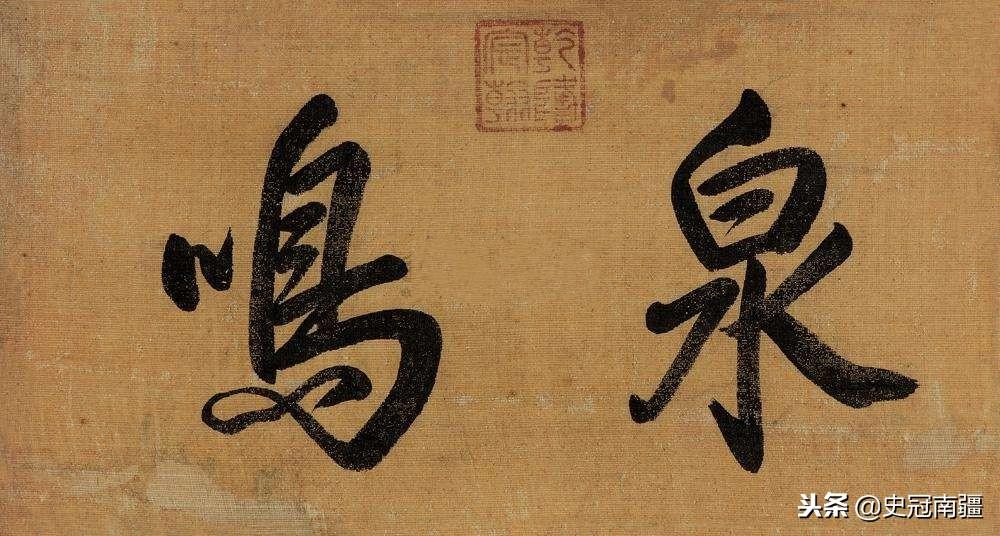 乾隆宸翰
泉鳴
头条 @史冠南疆